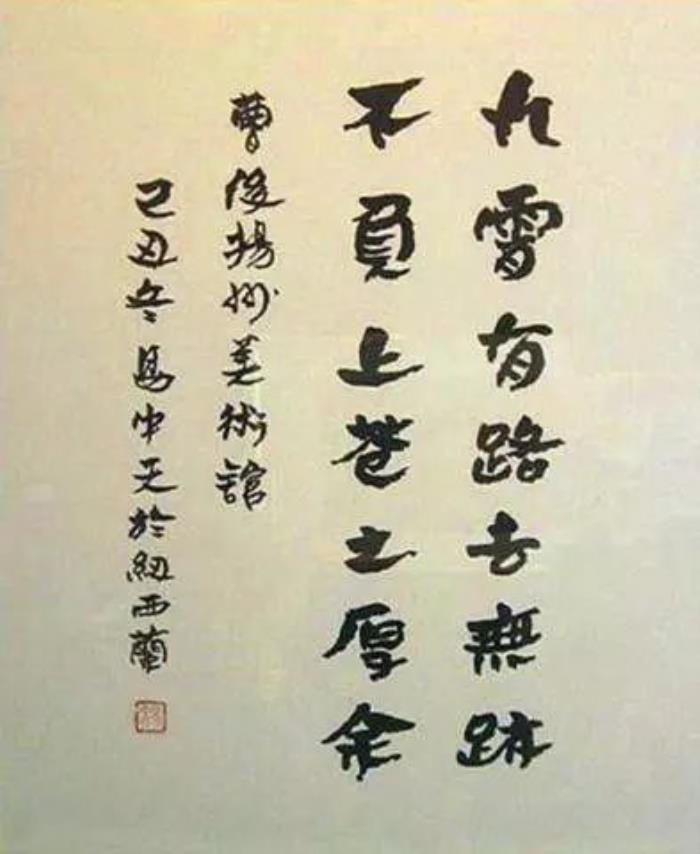 九霄有路去無跡
不負上蒼土厚余
曹俊揚州美術館
己丑冬馬中天於紐西蘭